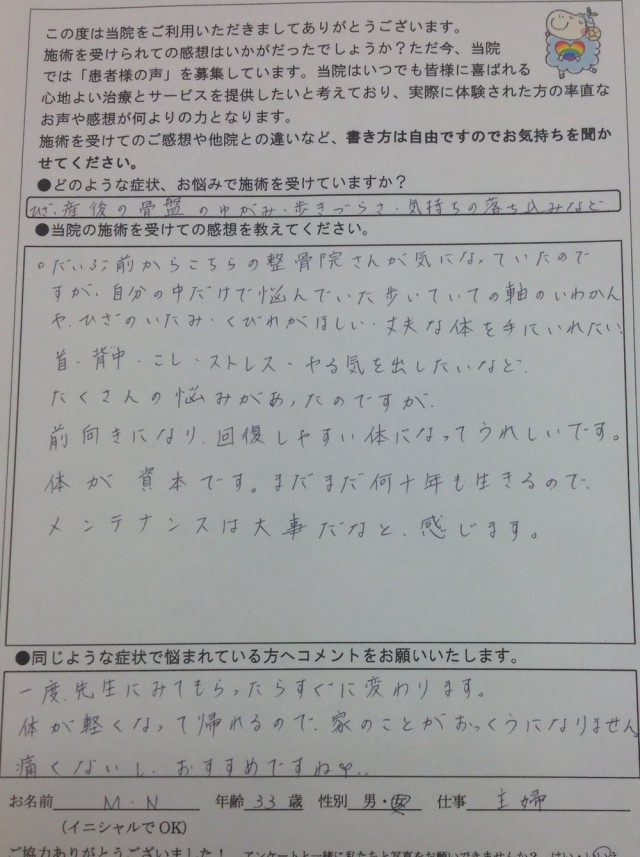 この度は当院をご利用いただきましてありがとうございます。
施術を受けられての感想はいかがだったでしょうか？ただ今、当院
では「患者様の声」を募集しています。当院はいつでも皆様に喜ばれる
心地よい治療とサービスを提供したいと考えており、実際に体験された方の率直な
お声や感想が何よりの力となります。
施術を受けてのご感想や他院との違いなど、書き方は自由ですのでお気持ちを聞か
せてください。
●どのような症状、お悩みで施術を受けていますか？
ひざ、産後の骨盤のゆがみ・歩きづらさ・気持ちの落ち込みなど
●当院の施術を受けての感想を教えてください。
○だいぶ前からこちらの整骨院さんが気になっていたので
すが、自分の中だけで悩んでいた歩いていての軸のいわかん
や、ひざのいたみ・くびれがほしい・丈夫な体を手にいれたい
首・背中・こし・ストレス・やる気を出したいなど、
たくさんの悩みがあったのですが、
前向きになり、回復しやすい体になってうれしいです。
体が資本です。まだまだ何十年も生きるので、
メンテナンスは大事だなと、感じます。
●同じような症状で悩まれている方へコメントをお願いいたします。
一度、先生にみてもらったらすぐに変わります。
体が軽くなって帰れるので、家のことがおっくうになりません
痛くないし、おすすめですね♡..
お名前 M・N 年齢 33 歳 性別 男・女 仕事 主婦
(イニシャルでOK)
ご協力ありがとうございました！ アンケートと一緒に私たちと写真をお願いできませんか？ はい・いいえ